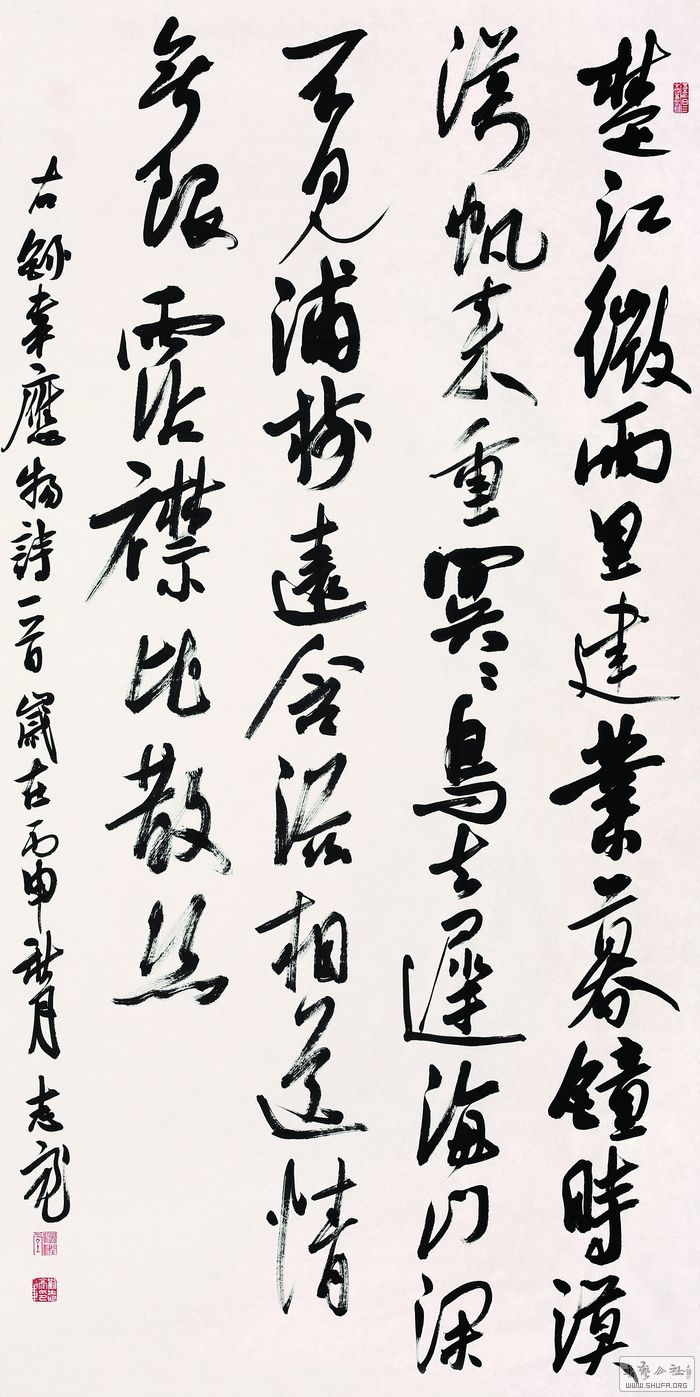 楚江微雨里建業暮鐘時漠
漠帆来重冥〻鳥去遲海门深
不見浦樹遠含滋相送情
無限霑襟比散絲
右錄韋應物詩一首歲在丙申秋月志
書藝公社
WWW.SHUFA.ORG